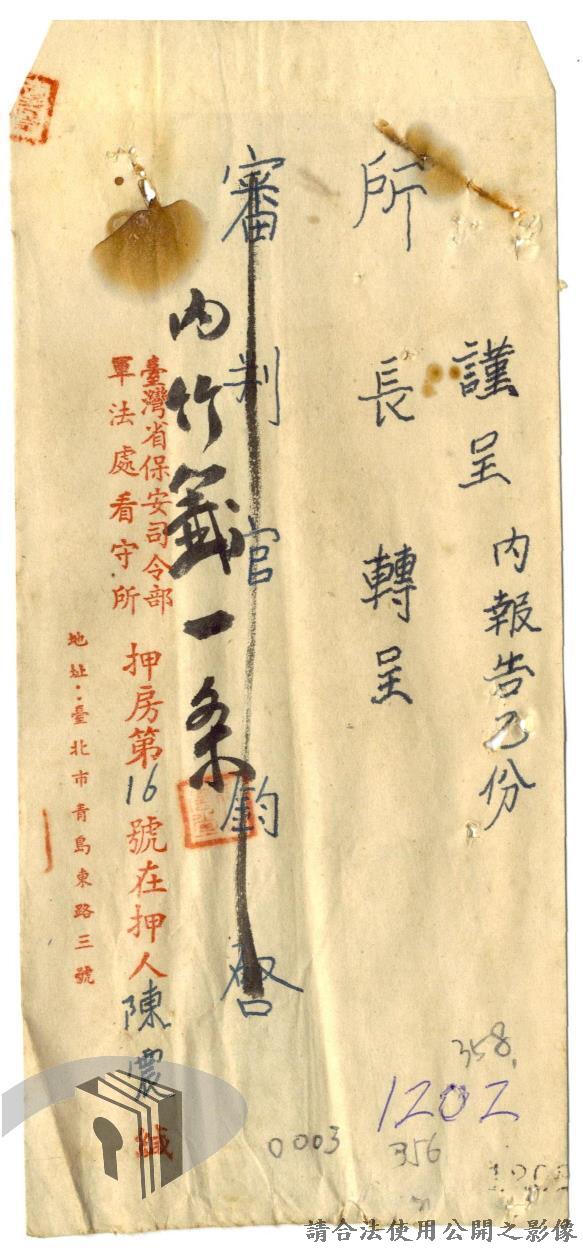 謹呈 內報告乙份
所長 轉呈
審判官 鈞啓
內竹籤一条
臺灣省保安司令部
軍法處看守所
押房第16號在押人陳震緘
地址：臺北市青島東路三號
358
1202
0003
356
請合法使用公開之影像